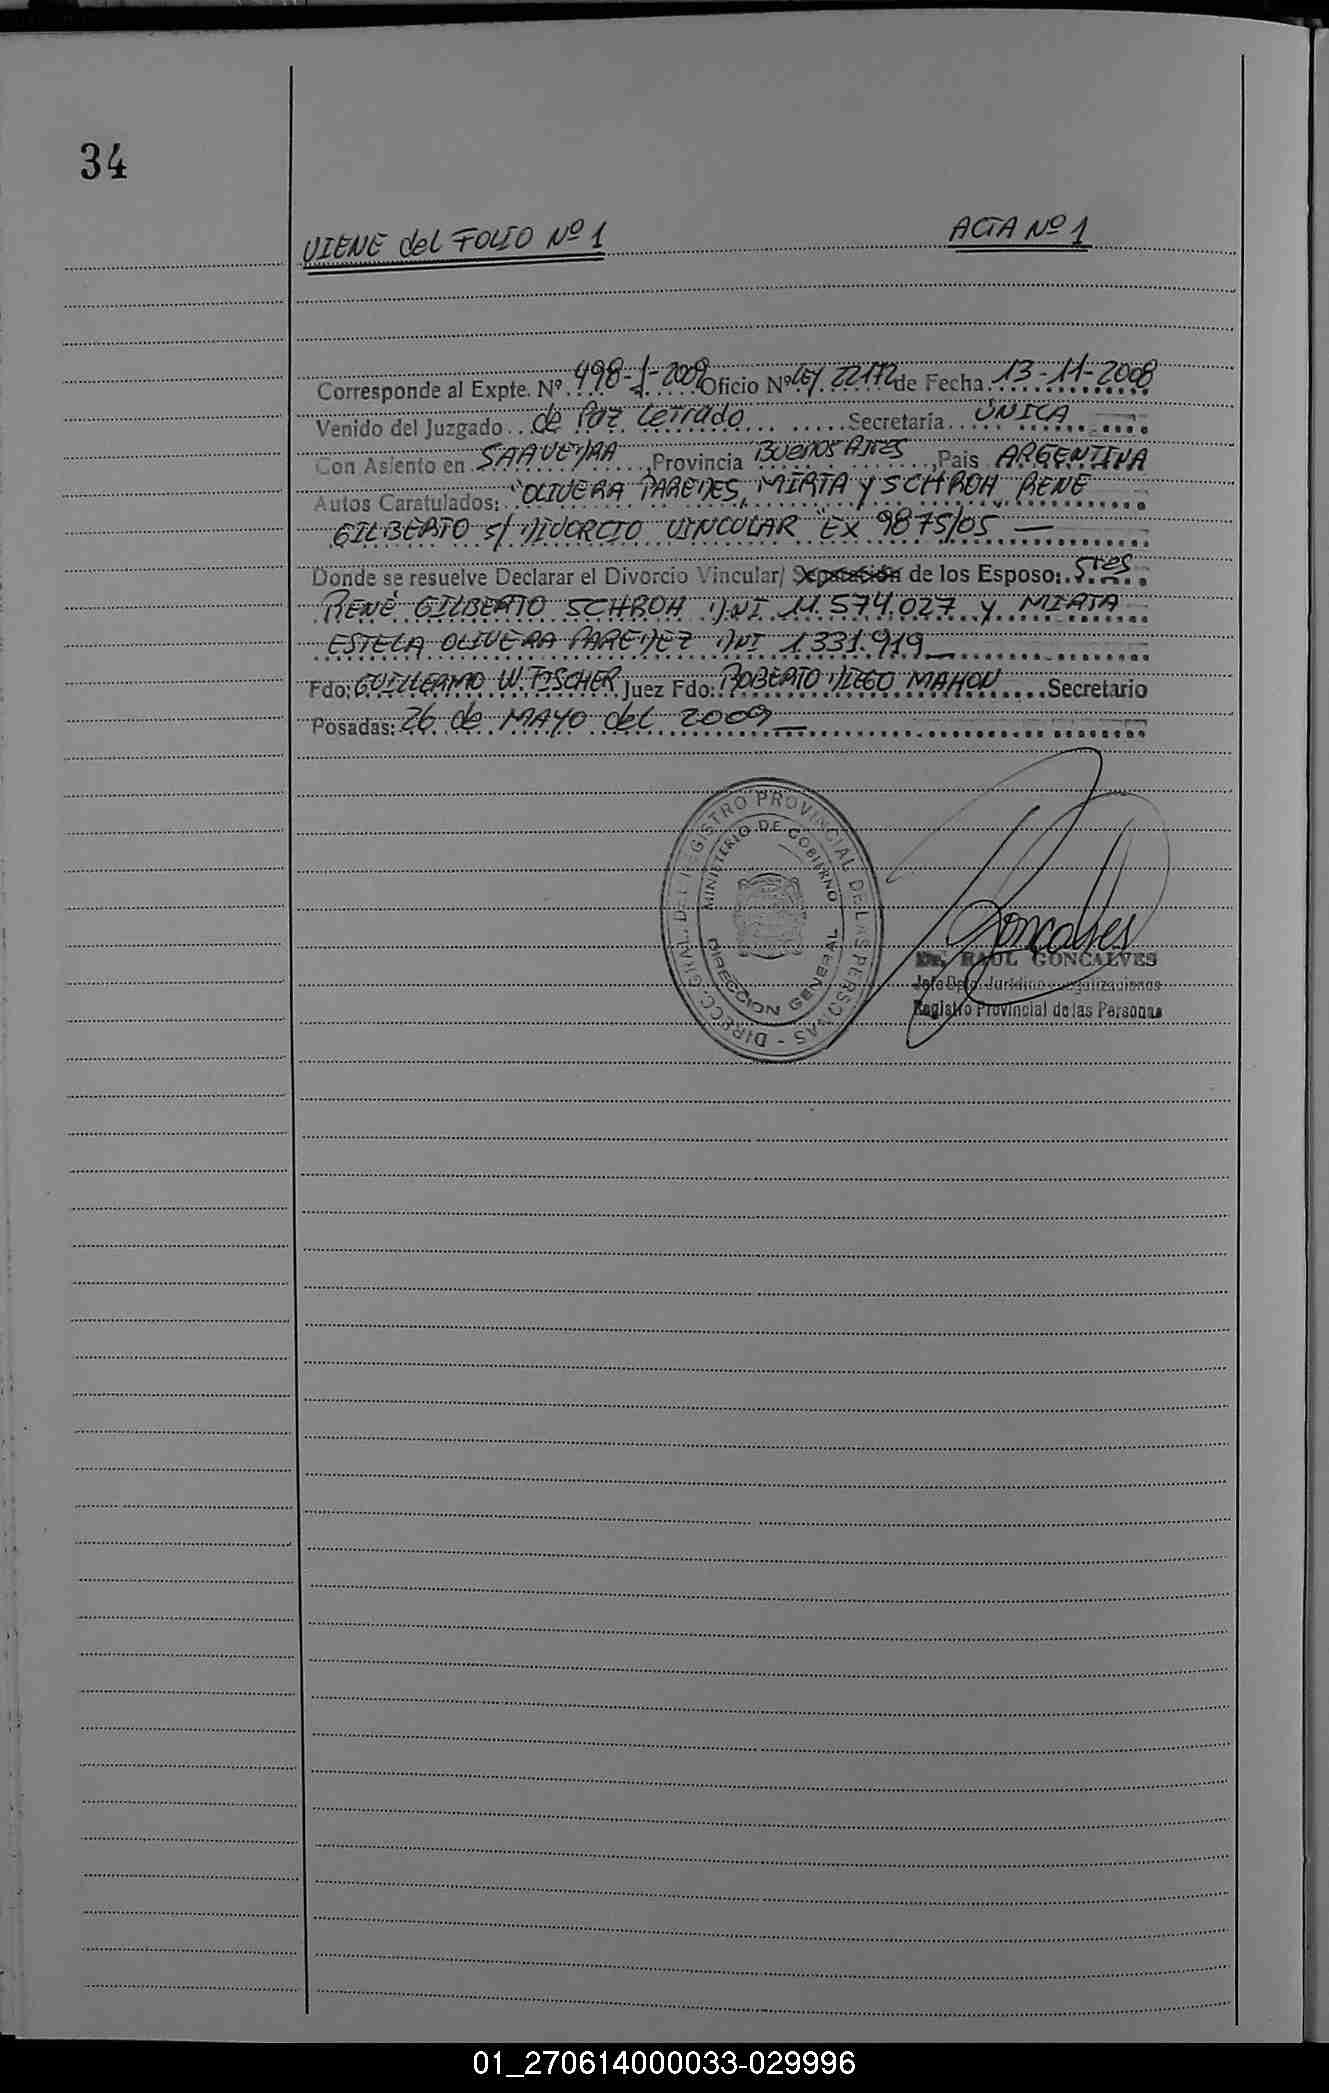 34
VIENE del FOLIO Nº 1 ACTA Nº 1
Corresponde al Expte. Nº 498-J-2009 Oficio Nº Ley 22172 de Fecha 13-11-2008
Venido del Juzgado de Paz Letrado Secretaría ÚNICA
Con Asiento en SAAVEDRA, Provincia Buenos Aires, País ARGENTINA
Autos Caratulados: "OLIVERA PAREDES, MIRTA y SCHROH RENE
GILBERTO s/ DIVORCIO VINCULAR" EX 9875/05 —
Donde se resuelve Declarar el Divorcio Vincular/ Separación de los Esposo: Sres
RENÉ GILBERTO SCHROH DNI 11.574.027 y MIRTA
ESTELA OLIVERA PAREDEZ DNI 1331.919 —
Fdo: GUILLERMO W. FISCHER Juez Fdo: ROBERTO DIEGO MAHON Secretario
Posadas: 26 de MAYO del 2009 —
DIRECC. GRAL. DEL REGISTRO PROVINCIAL DE LAS PERSONAS -
MINISTERIO DE GOBIERNO
DIRECCION GENERAL
Goncalves
Dr. RAUL GONCALVES
Jefe Dpto. Jurídico
Registro Provincial de las Personas
01_270614000033-029996